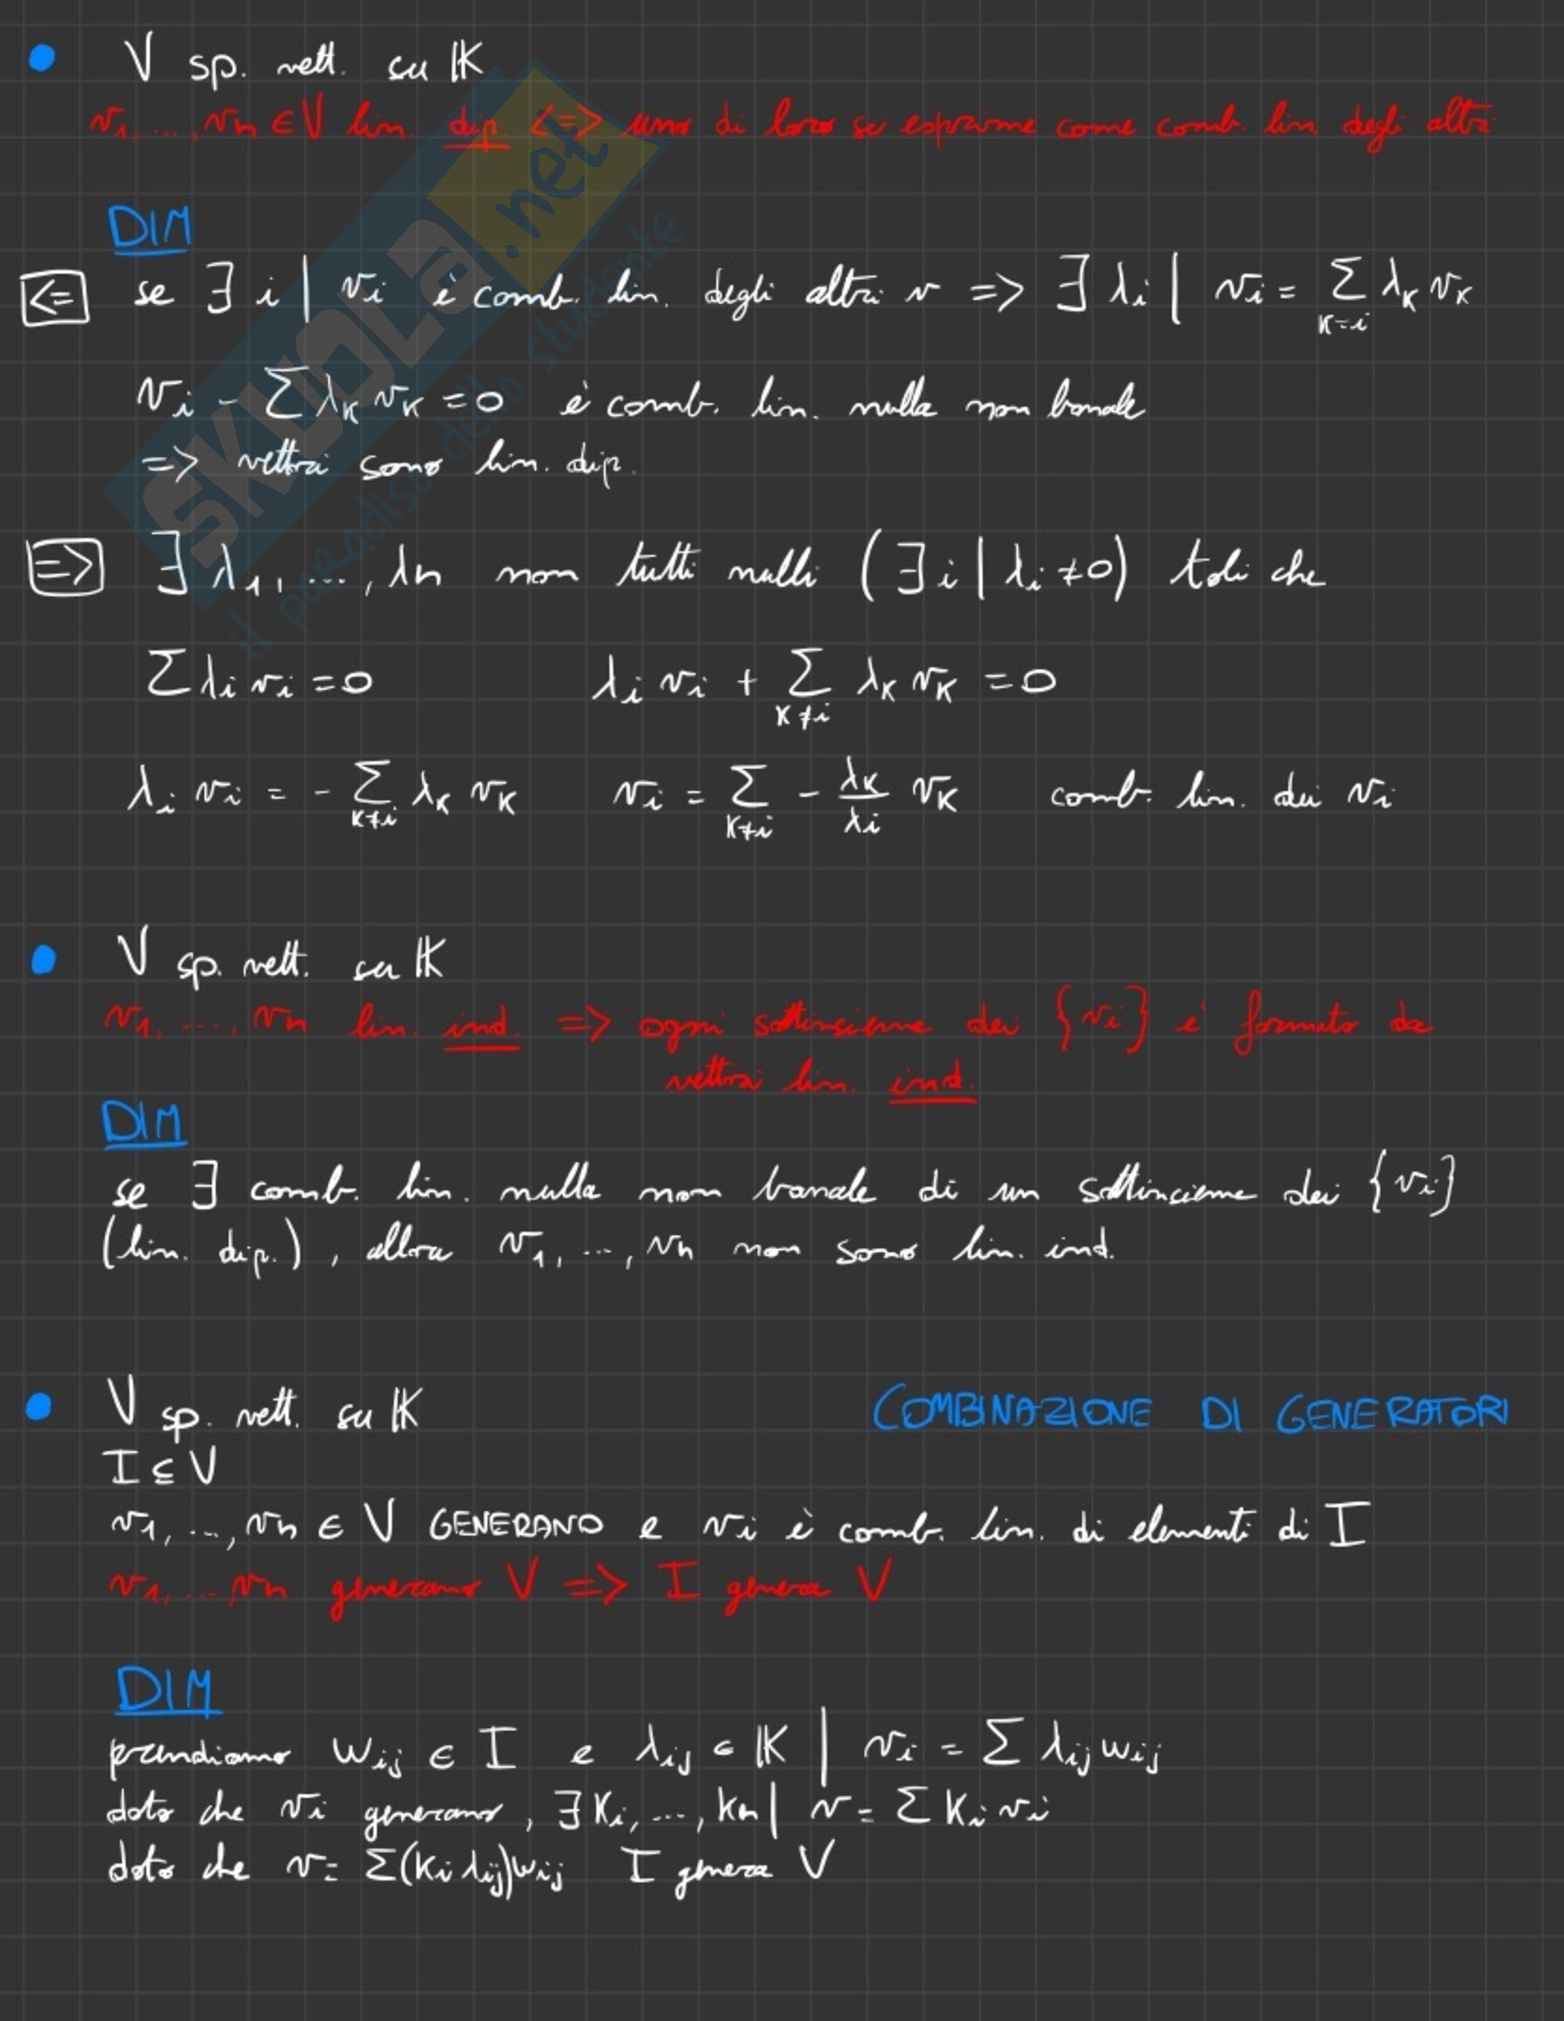 • V sp. vett. su K
v1, ..., vn ∈ V lin. dip <=> uno di loro se esprime come comb. lin. degli altri
DIM
<= se ∃ i | vi è comb. lin. degli altri v => ∃ λi | vi = Σ λk vk
k=i
vi - Σ λk vk = 0 è comb. lin. nulla non banale
=> vettori sono lin. dip.
=> ∃ λ1, ..., λn non tutti nulli (∃ i | λi ≠ 0) tali che
Σ λi vi = 0 λi vi + Σ λk vk = 0
k≠i
λi vi = - Σ λk vk vi = Σ - λk/λi vk comb. lin. dei vi
k≠i k≠i
• V sp. vett. su K
v1, ..., vn lin. ind. => ogni sottinsieme dei {vi} è formato da
vettori lin. ind.
DIM
se ∃ comb. lin. nulla non banale di un sottinsieme dei {vi}
(lin. dip.), allora v1, ..., vn non sono lin. ind.
• V sp. vett. su K COMBINAZIONE DI GENERATORI
I ⊆ V
v1, ..., vn ∈ V GENERANO e vi è comb. lin. di elementi di I
v1, ... vn generano V => I genera V
DIM
prendiamo wij ∈ I e λij ∈ K | vi = Σ λij wij
dato che vi generano, ∃ Ki, ..., kn | v = Σ Ki vi
dato che v = Σ(Ki λij)wij I genera V
SKUOLA.net
il paradiso dello studente